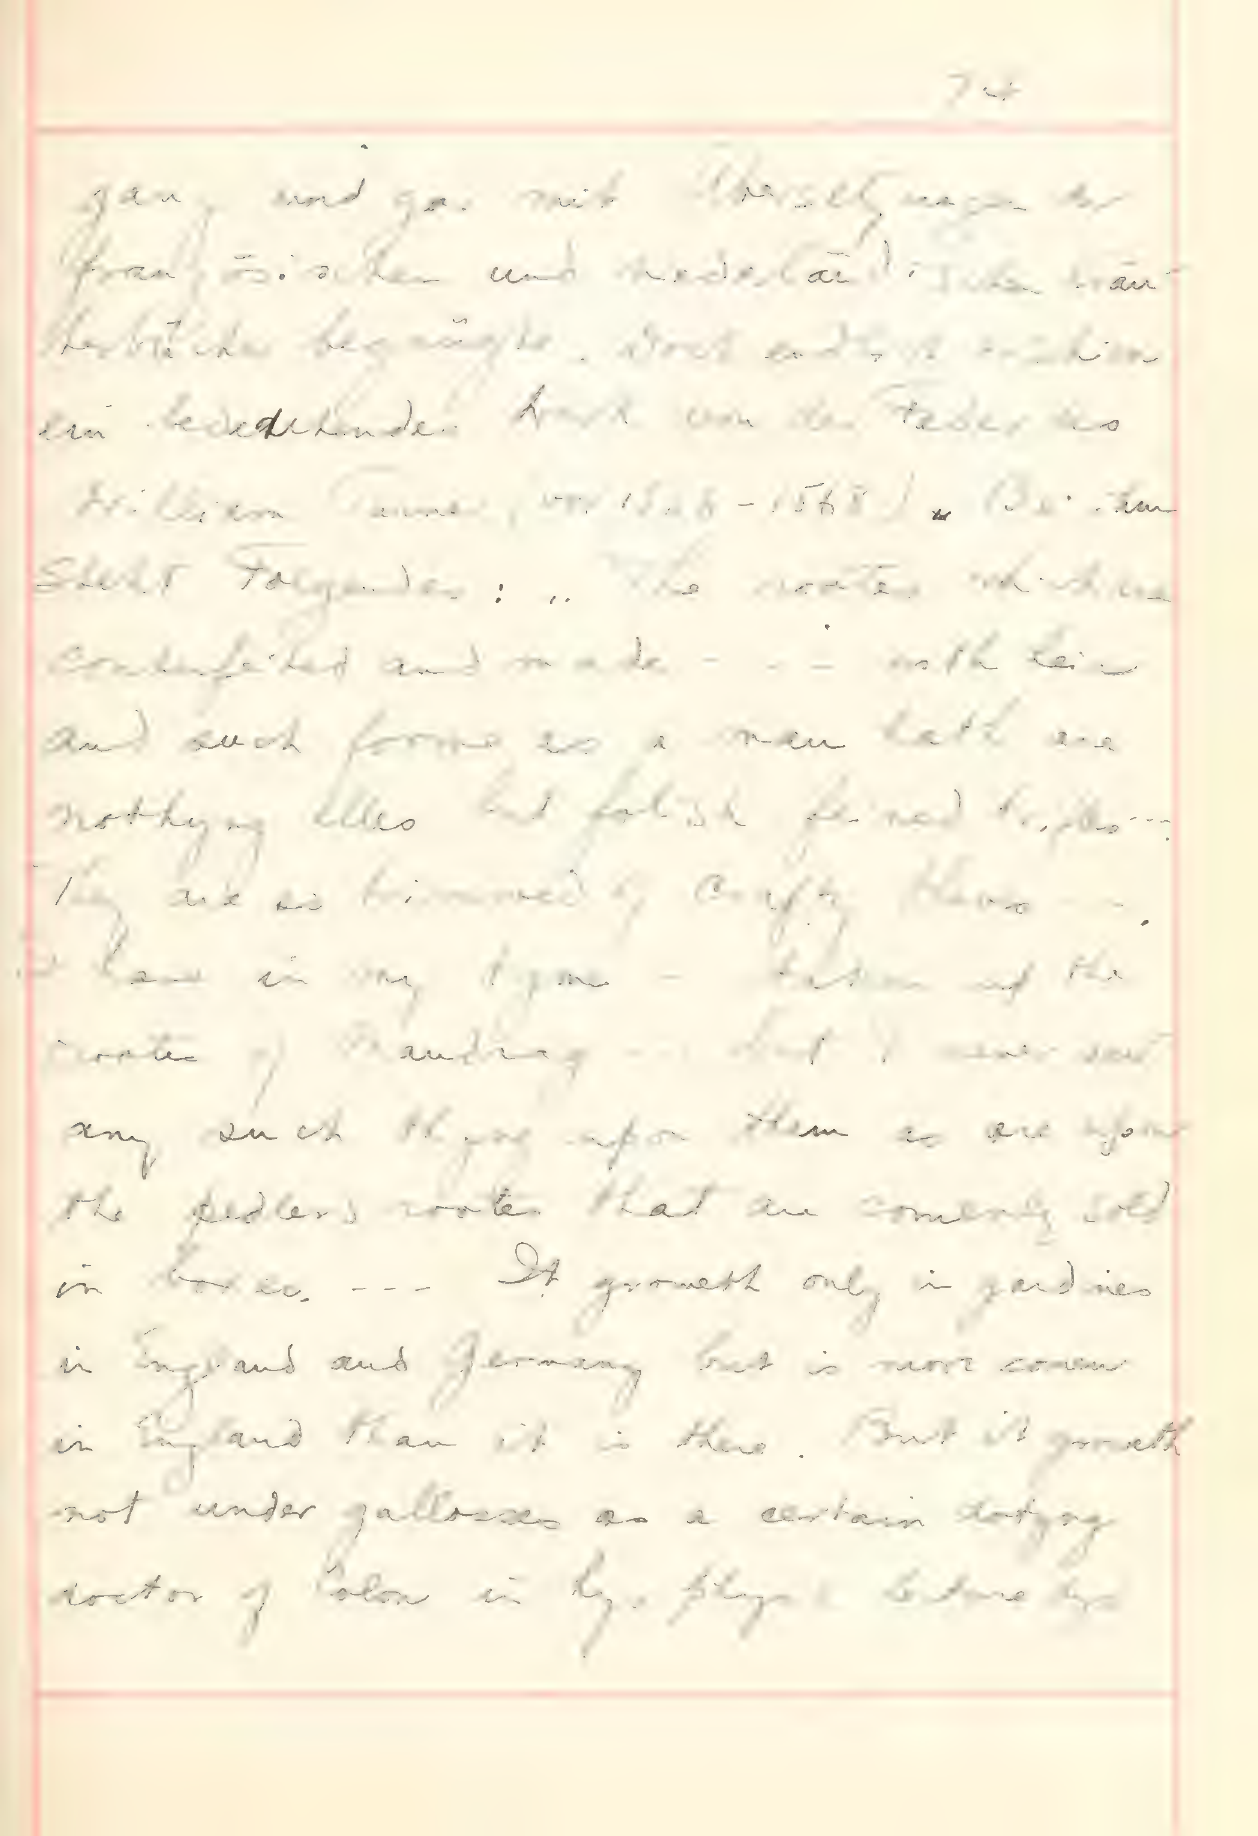 74
ganz und gar mit Übersetzungen der
französischen und niederländischen Kräu
terbücher begnügte. Doch endlich erschien
ein bedeutendes Werk von der Feder des
William Turner (1568). Bei ihm
steht Folgendes: „The rootes which are
conterfited and made - - - with heir
and such forme as a man hath are
nothyng elles but folish feined trifles ---
They are so trimmed of crafty theves - - -
I have in my tyme - taken up the
rootes of Mandrag - - but I never saw
any such thyng upon them as are upon
the pedlers rootes that are comenly sold
in boxes. --- It groweth only in gardines
in England and Germany but is more comen
in England than it is there. But it groweth
not under gallosses as a certain dotyng
doctor of Colon in hys physic lecture dyd